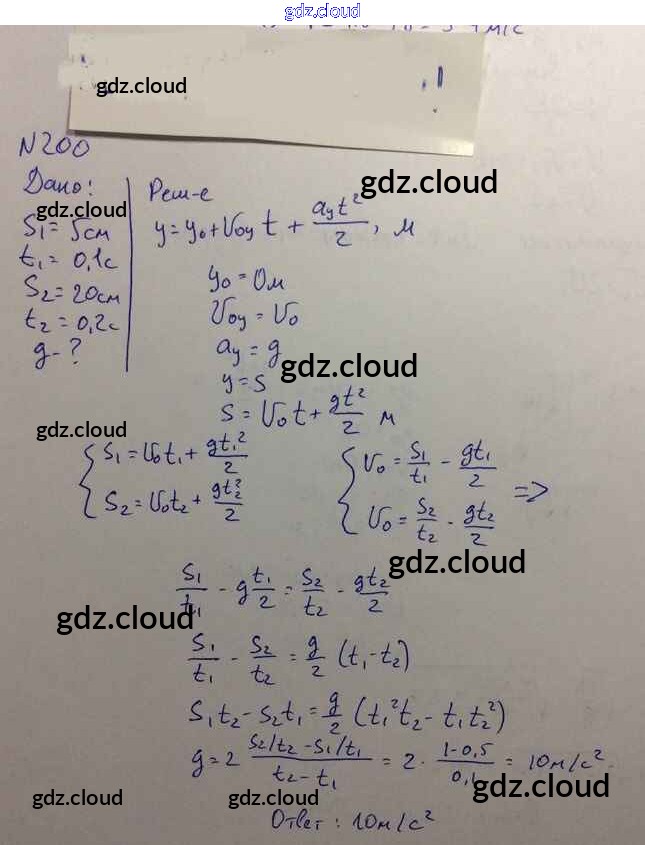 gdz.cloud
gdz.cloud
N200
Дано:
S₁ = 5см
t₁ = 0,1с
S₂ = 20см
t₂ = 0,2с
g - ?
gdz.cloud
Реш-е
gdz.cloud
y = y₀ + U₀y t + ayt²/2, м
y₀ = 0м
U₀y = U₀
ay = g
gdz.cloud
y = S
S = U₀t + gt²/2 м
gdz.cloud
{ S₁ = U₀t₁ + gt₁²/2
{ S₂ = U₀t₂ + gt₂²/2
{ U₀ = S₁/t₁ - gt₁/2
{ U₀ = S₂/t₂ - gt₂/2 =>
gdz.cloud
S₁/t₁ - g t₁/2 = S₂/t₂ - gt₂/2
gdz.cloud
S₁/t₁ - S₂/t₂ = g/2 (t₁ - t₂)
S₁t₂ - S₂t₁ = g/2 (t₁²t₂ - t₁t₂²)
g = 2 (S₂/t₂ - S₁/t₁)/(t₂ - t₁) = 2 · (1-0,5)/0,1 = 10м/с².
gdz.cloud
gdz.cloud
gdz.cloud
Ответ: 10м/с²